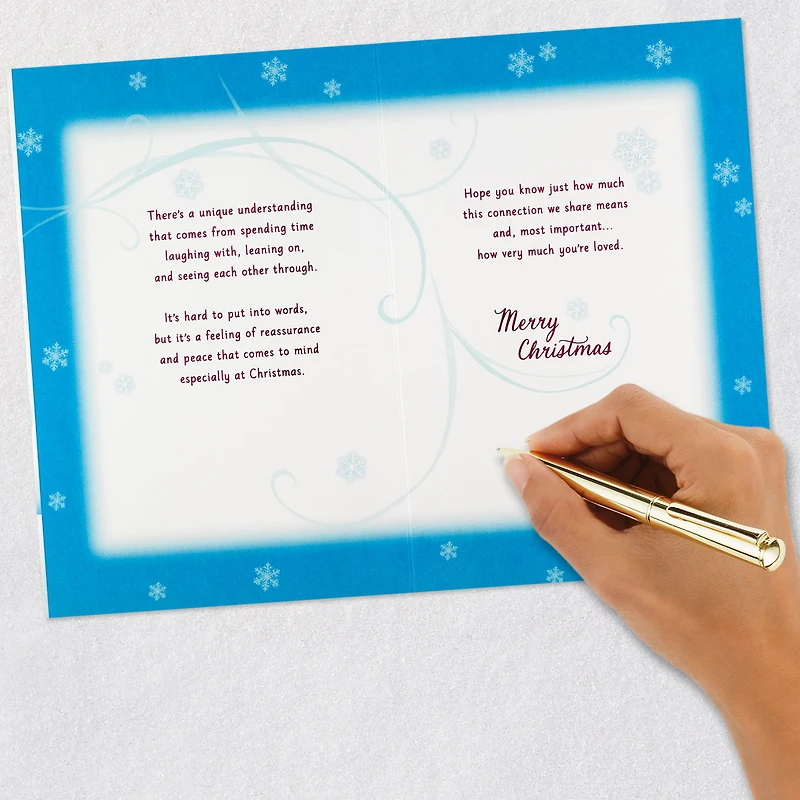 There's a unique understanding
that comes from spending time
laughing with, leaning on,
and seeing each other through.
It's hard to put into words,
but it's a feeling of reassurance
and peace that comes to mind
especially at Christmas.
Hope you know just how much
this connection we share means
and, most important...
how very much you're loved.
Merry
Christmas